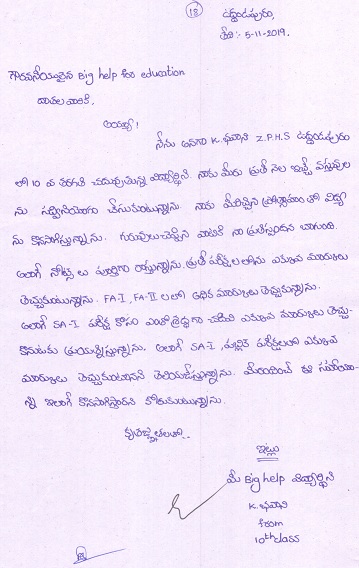 18
ఉద్దండపురం,
తేది:- 5-11-2019.
గౌరవనీయులైన Big help for education
దాతల వారికి,
అయ్యా!
నేను అనగా K. భవాని Z.P.H.S ఉద్దండపురం
లో 10 వ తరగతి చదువుతున్న విద్యార్థిని. నాకు మీరు ప్రతీ నెల ఇచ్చే వస్తువుల
ను సద్వినియోగం చేసుకుంటున్నాను. నాకు మీరిచ్చిన ప్రోత్సాహం తో విద్య
ను కొనసాగిస్తున్నాను. గురువులు చెప్పిన వాటికి నా ప్రతిస్పందన బాగుంది.
అలాగే నోట్స్ లు పూర్తిగా రాస్తున్నాను. ప్రతీ పరీక్ష లలోను ఎక్కువ మార్కులు
తెచ్చుకుంటున్నాను. FA-I, FA-II లలో అధిక మార్కులు తెచ్చుకున్నాను.
అలాగే SA-I పరీక్ష కోసం ఎంతో శ్రద్ధగా చదివి ఎక్కువ మార్కులు తెచ్చు-
కొనుటకు ప్రయత్నిస్తున్నాను. అలాగే SA-I, పబ్లిక్ పరీక్షలలో ఎక్కువ
మార్కులు తెచ్చుకుంటానని తెలియజేస్తున్నాను. మీరందించే ఈ సహాయా-
న్ని ఇలాగే కొనసాగిస్తారని కోరుకుంటున్నాను.
కృతజ్ఞతలతో..
ఇట్లు
మీ Big help విద్యార్థిని
K. భవాని
from
10th class